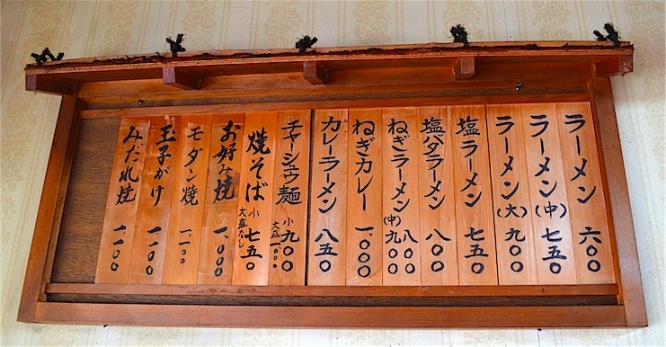 ラーメン 六〇〇
ラーメン(中) 七五〇
ラーメン(大) 九〇〇
塩ラーメン 七五〇
塩バタラーメン 八〇〇
ねぎラーメン 八〇〇
(中)九〇〇
ねぎカレー 一、〇〇〇
カレーラーメン 八五〇
チャーシュウ麺 小 九〇〇
大盛 一、〇〇〇
焼そば 小 七五〇
大盛なし
お好み焼 一、〇〇〇
モダン焼 一、一〇〇
玉子がけ 一、一〇〇
みだれ焼 一、一〇〇